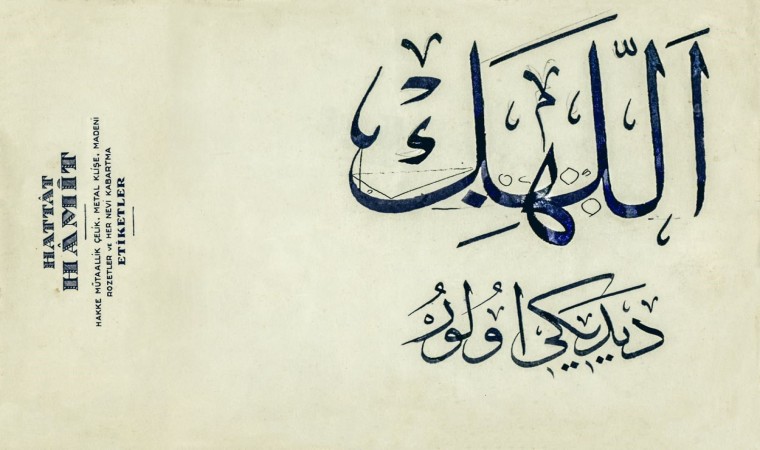 اللّٰهِكْ
ديديكى اولور
HATTÂT
HÂMİT
HAKKE MÜTAALLİK ÇELİK, METAL KLİŞE, MADENİ
ROZETLER VE HER NEVİ KABARTMA
ETİKETLER